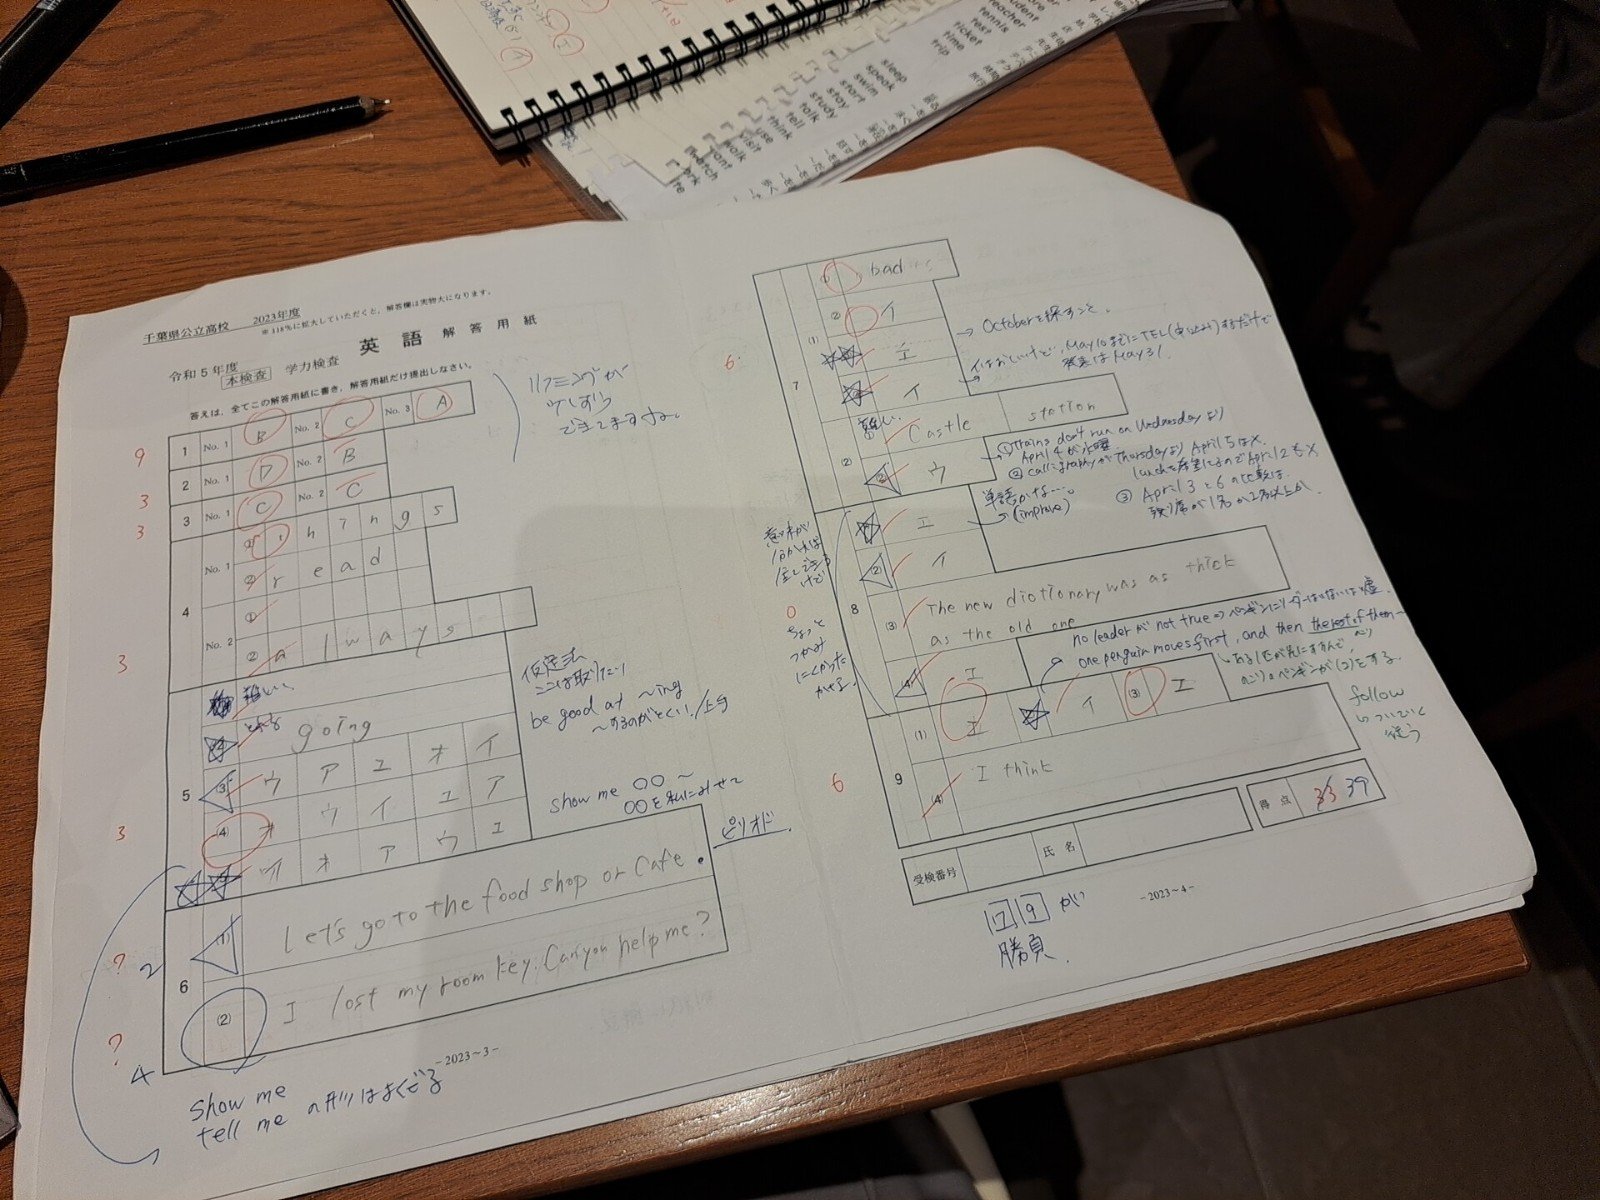 千葉県公立高校 2023年度
※118%に拡大していただくと、解答欄は実物大になります。
令和5年度 本検査 学力検査 英語 解答用紙
答えは、全てこの解答用紙に書き、解答用紙だけ提出しなさい。
9 1 No. 1 B No. 2 C No. 3 A
2 No. 1 D No. 2 B
3 3 No. 1 C No. 2 C
3 4 No. 1 ① t h i n g s
② r e a d
No. 2 ①
3 ② a l w a y s
リスニングが
できてますね。
5 難しい
going
③ ウ ア エ オ イ
3 ④ オ ウ イ エ ア
イ オ ア ウ エ
仮定法
ここは取りたい
be good at ~ing
~するのがとくい/上手
show me ○○ ~
○○を私にみせて
? 2 6 (1) Let's go to the food shop or cafe.
ピリオド.
? 4 (2) I lost my room key. Can you help me?
-2023~3-
show me
tell me の形はよくでる
6 7 (1) ① bad
② イ
エ
イ
→ Octoberを探すこと。
イはおしいけど、May10までにTEL(申込み)するだけで
発表はMay31.
難しい
(2) ① Castle station
② ウ
① trains don't run on Wednesdayより
April 4が水曜
② calligraphyがThursdayより April 5は×.
lunchを希望してるのでApril 2も×
③ April 3と6の比較は
単語がな…。
(improve)
意味が
分かれば
けど
0
ちょっと
つかみ
にくかった
かせる。
8 エ
(2) イ
(3) The new dictionary was as thick
as the old one
(4) エ
no leaderがnot true⇒ペンギンにリーダーはいないは嘘.
one penguin moves first, and then the rest of them~
のこりのペンギンが(2)をする.
follow
ついていく
従う
6 9 (1) エ イ (3) エ
(4) I think
受検番号 氏名 得点 33 39
-2023~4-
7 9 が
勝負.
sleep
speak
swim
start
stay
study
talk
tell
think
use
visit
walk
want
watch
student
teacher
tennis
test
ticket
time
trip